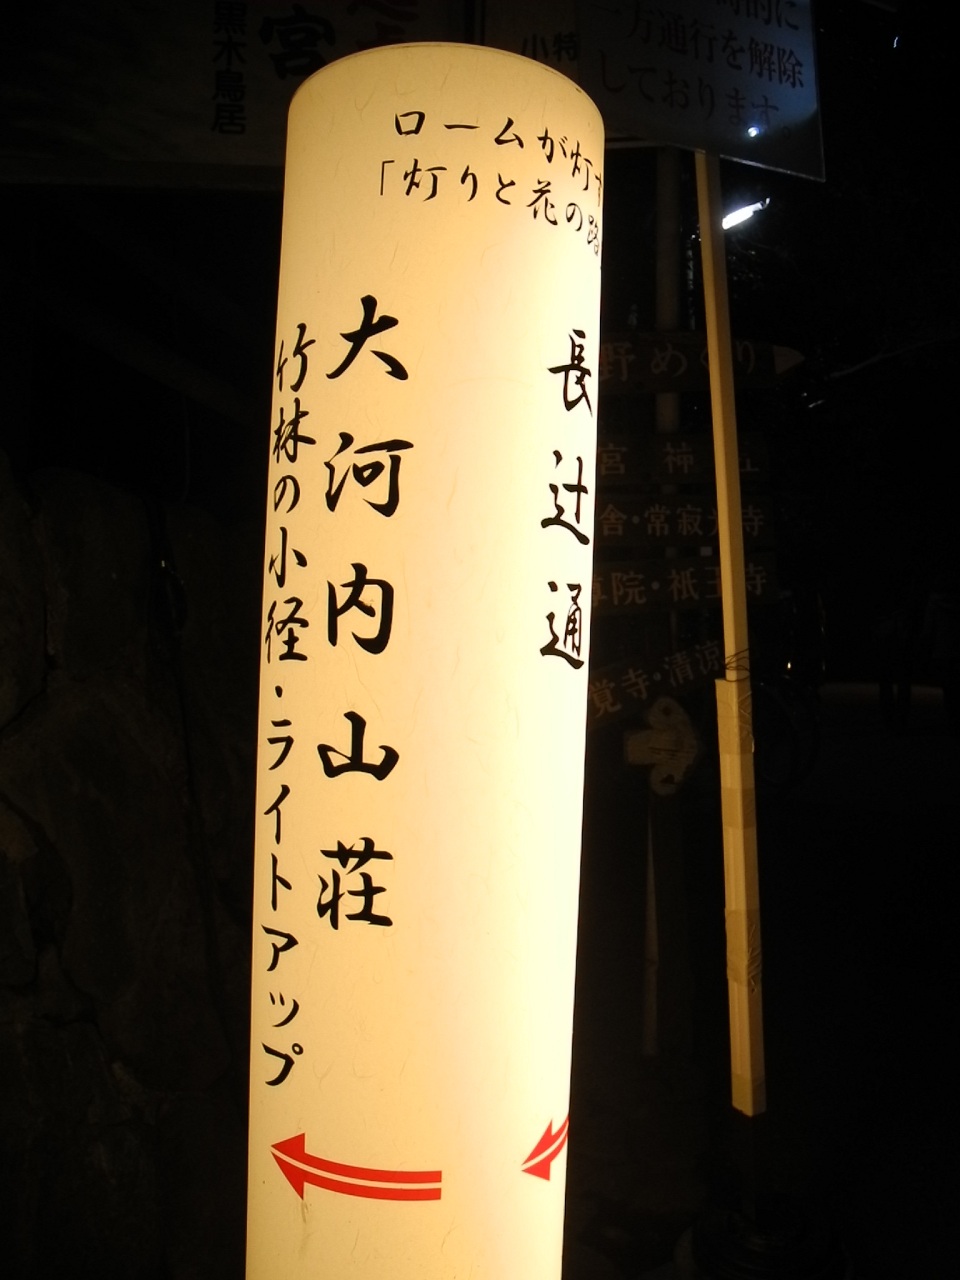 ロームが灯す
「灯りと花の路
長辻通
大河内山荘
竹林の小径・ライトアップ
宮
黒木鳥居
小特
一方通行を解除
しております。
野めぐり
宮神社
舎・常寂光寺
院・祇王寺
覚寺・清凉